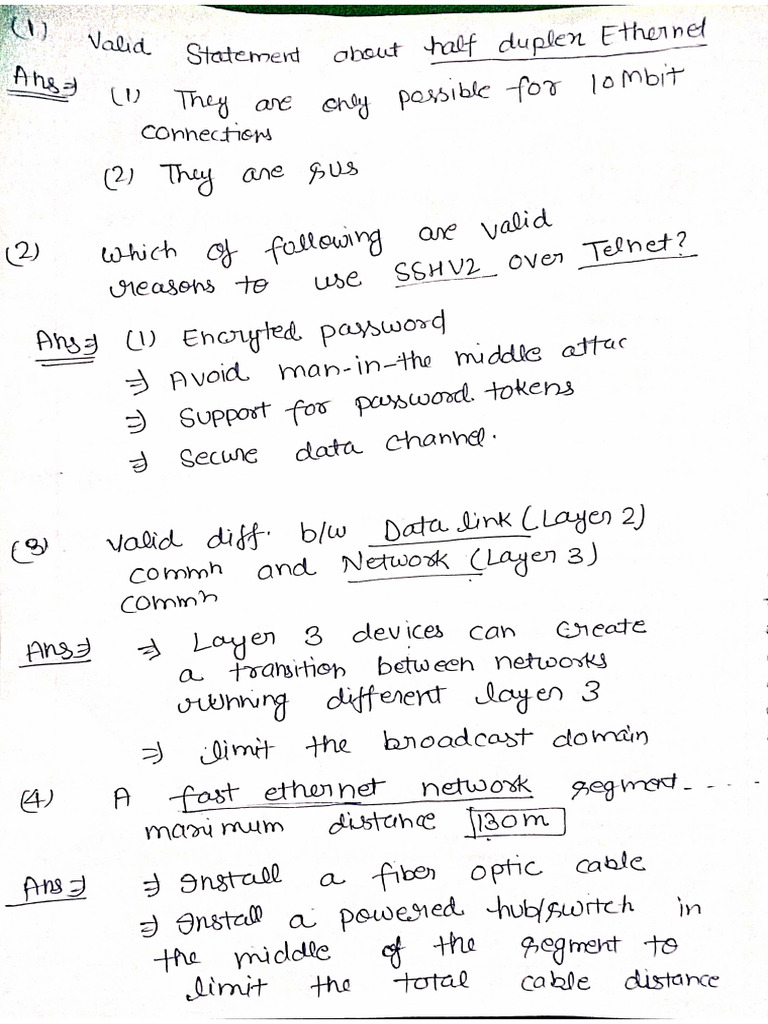 (1) Valid Statement about half duplex Ethernet
Ans ⇒ (1) They are only possible for 10Mbit
connections
(2) They are sus
(2) Which of following are valid
reasons to use SSHV2 over Telnet?
Ans ⇒ (1) Encryted password
⇒ Avoid man-in-the middle attac
⇒ Support for password tokens
⇒ Secure data channel.
(3) Valid diff. b/w Data link (Layer 2)
commn and Network (Layer 3)
commn
Ans ⇒ ⇒ Layer 3 devices can create
a transition between networks
running different layer 3
⇒ limit the broadcast domain
(4) A fast ethernet network segment....
maximum distance 130m
Ans ⇒ ⇒ Install a fiber optic cable
⇒ Install a powered hub/switch in
the middle of the segment to
limit the total cable distance